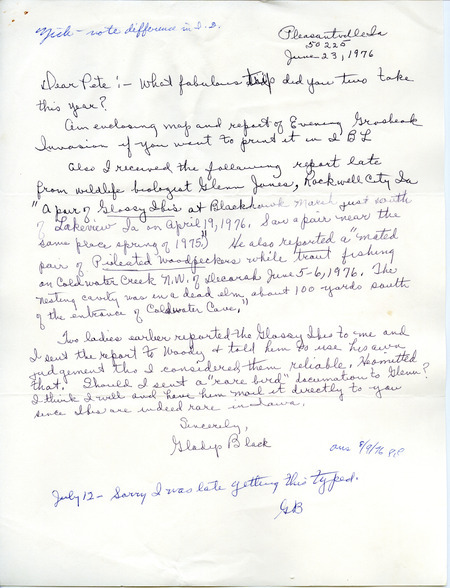 Nick - note difference in I.D.
Pleasantville Ia
50225
June 23, 1976
Dear Pete :- What fabulous trip did you two take
this year?
Am enclosing map and report of Evening Grosbeak
Invasion if you want to print it in I B L
Also I received the following report late
from wildlife biologist Glenn Jones, Rockwell City Ia
"A pair of Glossy Ibis at Blackhawk Marsh just south
of Lakeview Ia on April 19, 1976. Saw a pair near the
same place spring of 1975." He also reported a "mated
pair of Pileated Woodpeckers while trout fishing
on Coldwater Creek N.W. of Decorah June 5-6, 1976. The
nesting cavity was in a dead elm, about 100 yards south
of the entrance of Coldwater Cave."
Two ladies earlier reported the Glossy Ibis to me and
I sent the report to Woody & told him to use his own
judgement tho I considered them reliable. He omitted
that. Should I sent a "rare bird" documation to Glenn?
I think I will and have him mail it directly to you
since Ibis are indeed rare in Iowa.
Sincerely,
Gladys Black
ans 8/9/76 PP
July 12 - Sorry I was late getting this typed.
GB